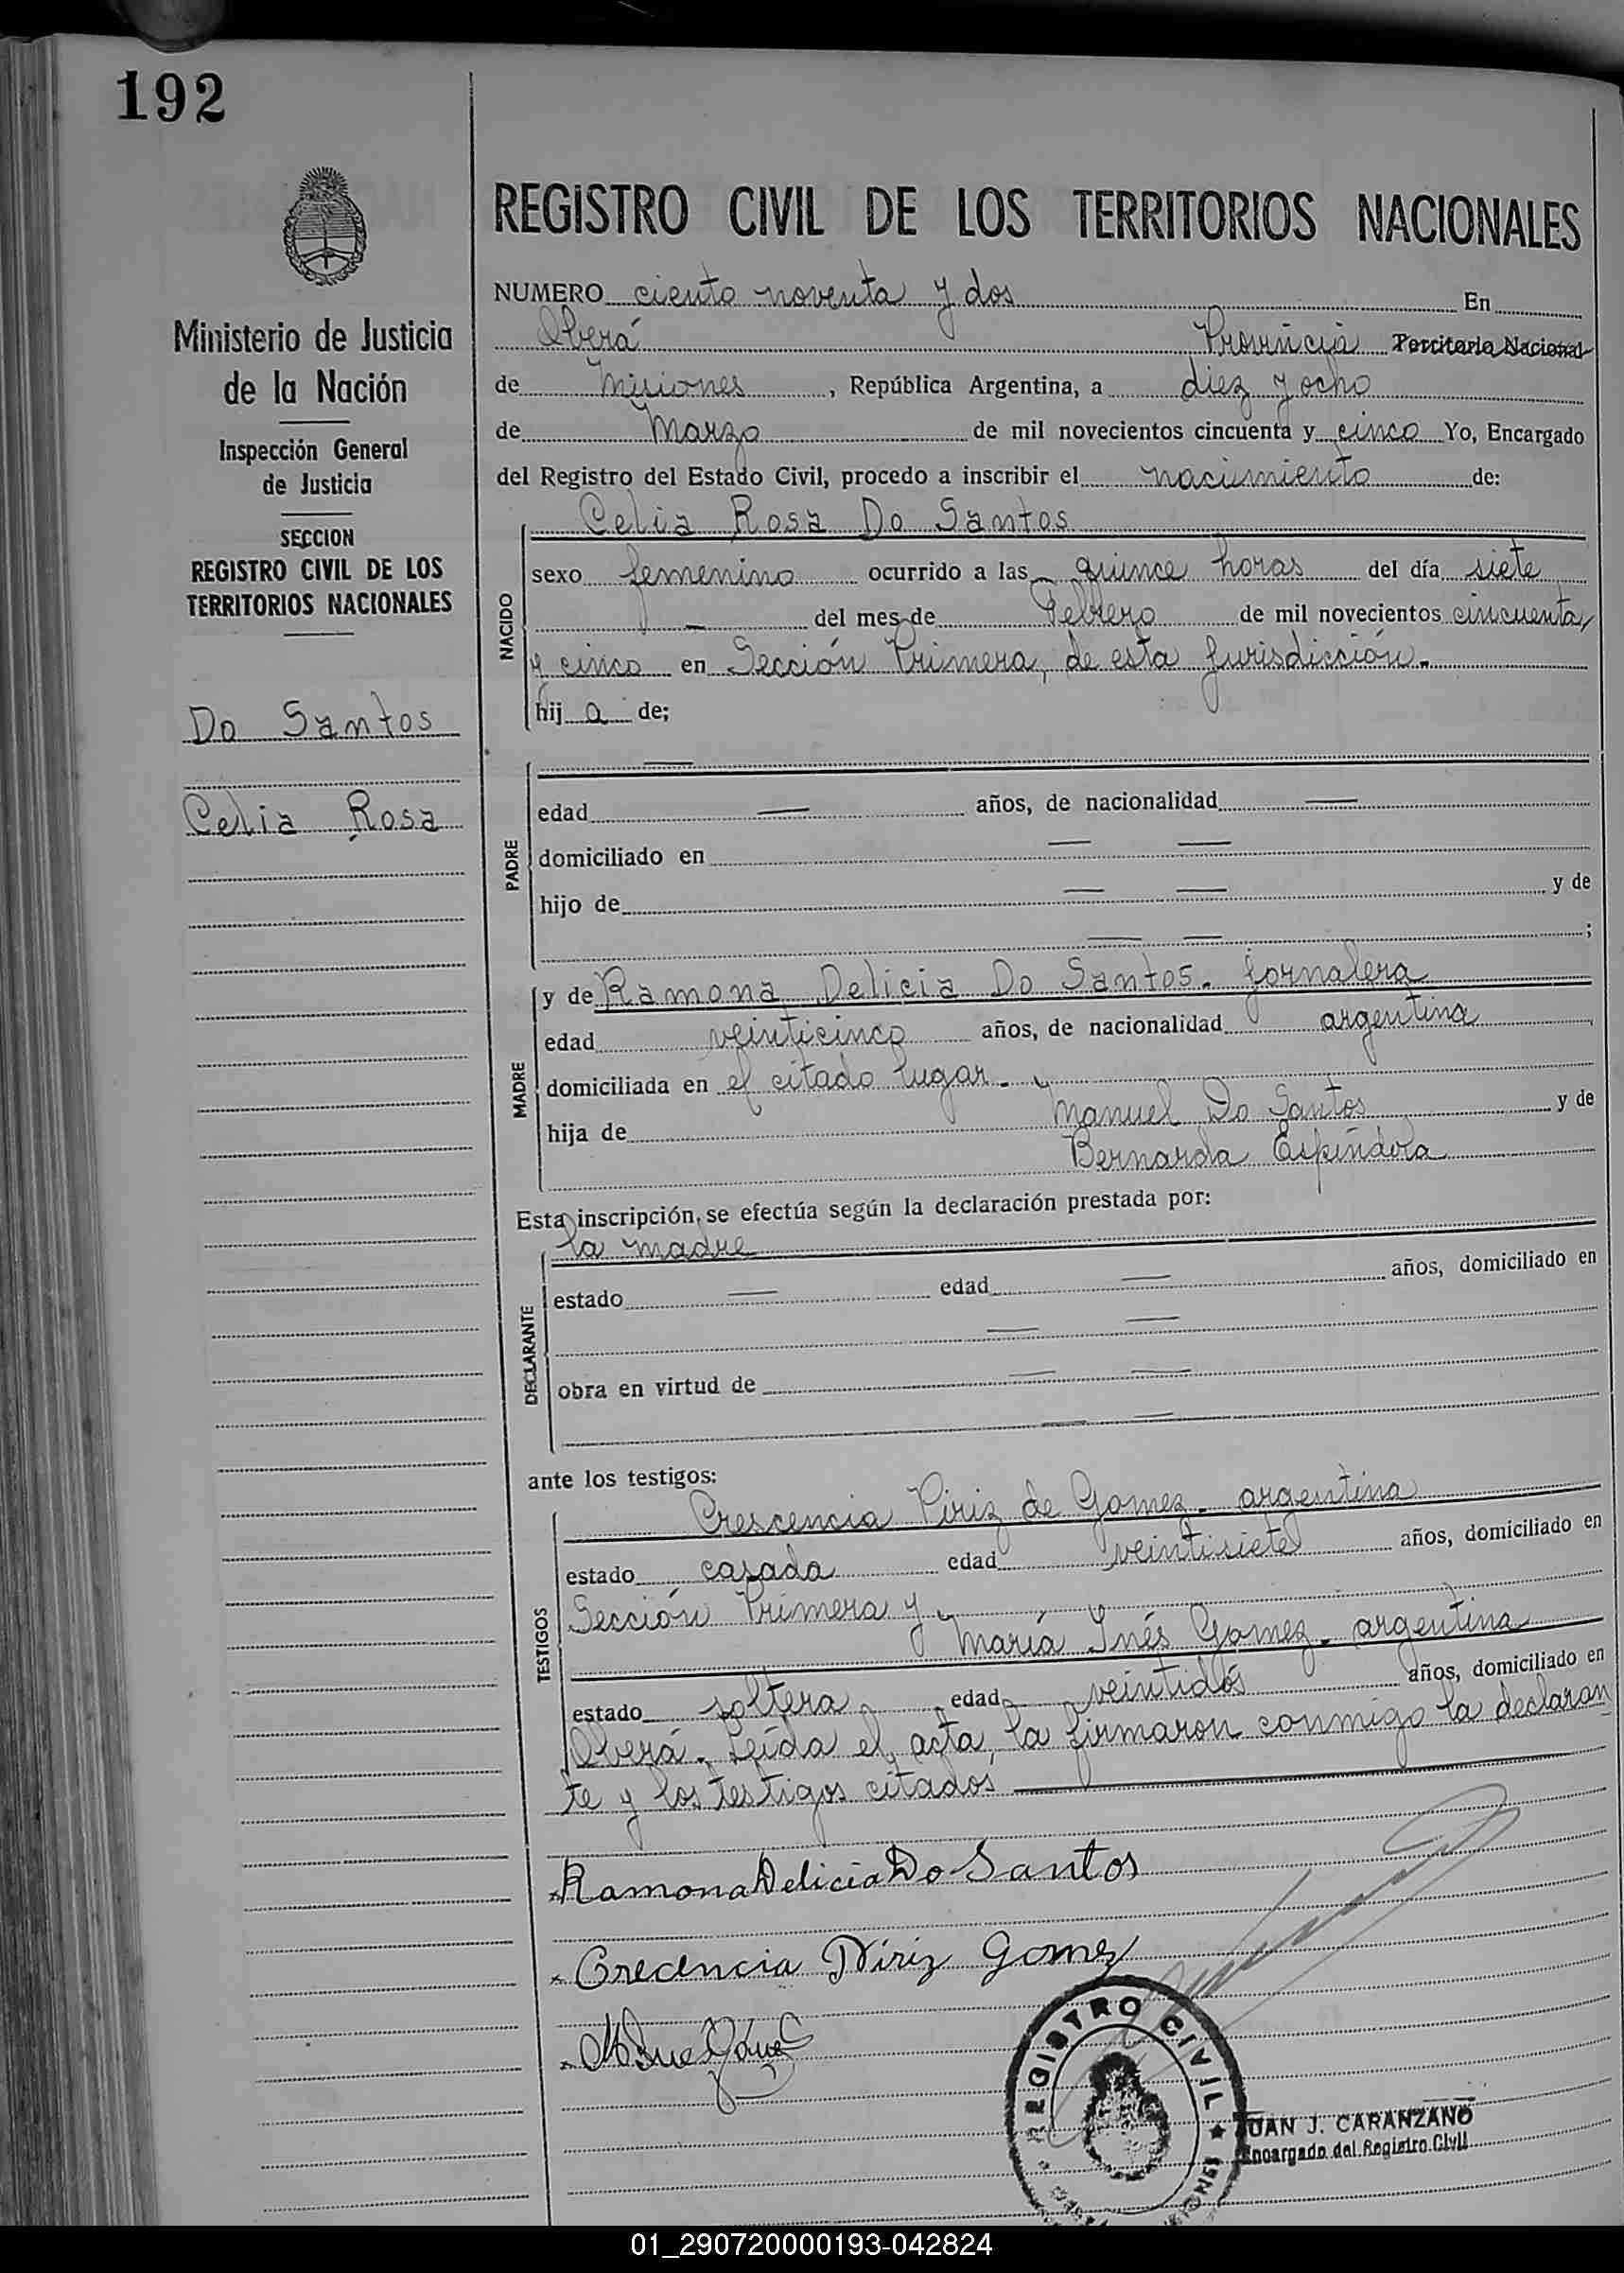 192
Ministerio de Justicia
de la Nación
Inspección General
de Justicia
SECCION
REGISTRO CIVIL DE LOS
TERRITORIOS NACIONALES
Do Santos
Celia Rosa
REGISTRO CIVIL DE LOS TERRITORIOS NACIONALES
NUMERO ciento noventa y dos En
Oberá Provincia Territorio Nacional
de Misiones, República Argentina, a diez y ocho
de Marzo de mil novecientos cincuenta y cinco Yo, Encargado
del Registro del Estado Civil, procedo a inscribir el nacimiento de:
Celia Rosa Do Santos
NACIDO
sexo femenino ocurrido a las quince horas del día siete
— del mes de Febrero de mil novecientos cincuenta
y cinco en Sección Primera, de esta Jurisdicción.
hij a de;
PADRE
—
edad — años, de nacionalidad —
domiciliado en — —
hijo de — — y de
— — ;
MADRE
y de Ramona Delicia Do Santos. Jornalera
edad veinticinco años, de nacionalidad argentina
domiciliada en el citado lugar.
hija de Manuel Do Santos y de
Bernarda Espíndola
Esta inscripción, se efectúa según la declaración prestada por:
DECLARANTE
la madre
estado — edad — años, domiciliado en
— —
obra en virtud de — —
— —
ante los testigos:
TESTIGOS
Crescencia Piriz de Gomez. argentina
estado casada edad veintisiete años, domiciliado en
Sección Primera y
María Inés Gomez. argentina
estado soltera edad veintidós años, domiciliado en
Oberá. Leída el acta, la firmaron conmigo la declaran
te y los testigos citados
Ramona Delicia Do Santos
Crecencia Piriz Gomez
REGISTRO CIVIL
JUAN J. CARANZANO
Encargado del Registro Civil
01_290720000193-042824